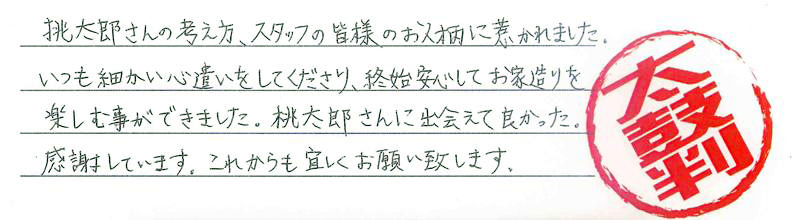 桃太郎さんの考え方、スタッフの皆様のお人柄に惹かれました。
いつも細かい心遣いをしてくださり、終始安心してお家造りを
楽しむ事ができました。桃太郎さんに出会えて良かった。
感謝しています。これからも宜しくお願い致します。
太鼓判